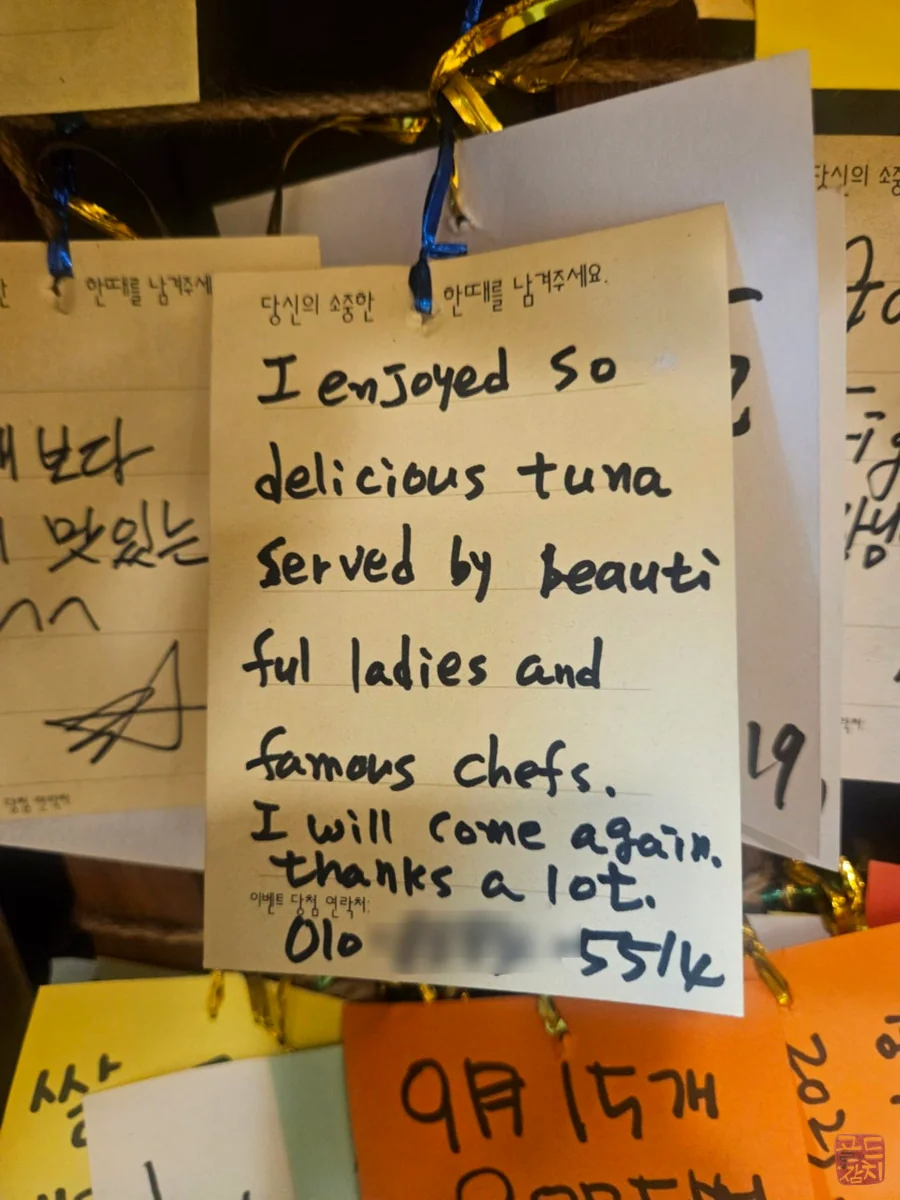 당신의 소중한 한때를 남겨주세요.
I enjoyed so
delicious tuna
served by beauti
ful ladies and
famous chefs.
I will come again.
thanks a lot.
이벤트 당첨 연락처:
010 5514
한때를 남겨주세
보다
맛있는
^^
당첨 연락처
당신의 소중
19
쌀
9월 15개
202